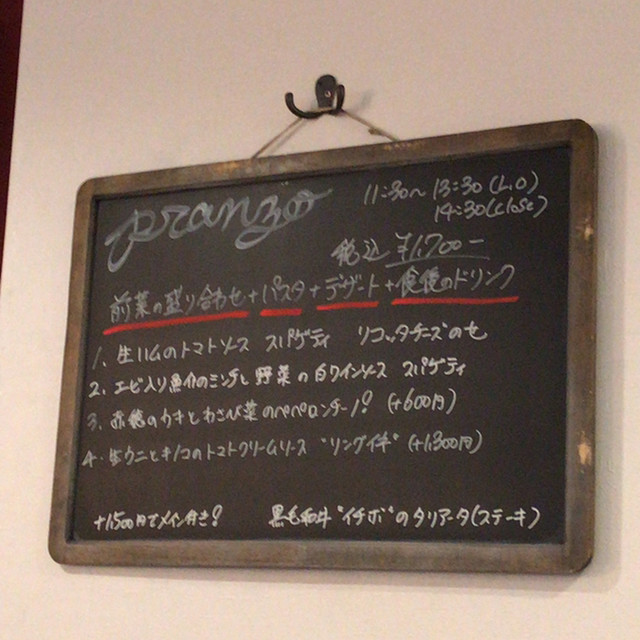 pranzo
11:30〜13:30(L.O)
14:30(close)
税込 ¥1,700-
前菜の盛り合わせ+パスタ+デザート+食後のドリンク
1. 生ハムのトマトソース スパゲティ リコッタチーズのせ
2. エビ入り魚介のミンチと野菜の白ワインソース スパゲティ
3. 赤穂のカキとわさび菜のペペロンチーノ! (+600円)
4. 生ウニとキノコのトマトクリームソース "リングイネ" (+1,300円)
+1,500円でメイン付き! 黒毛和牛"イチボ"のタリアータ(ステーキ)